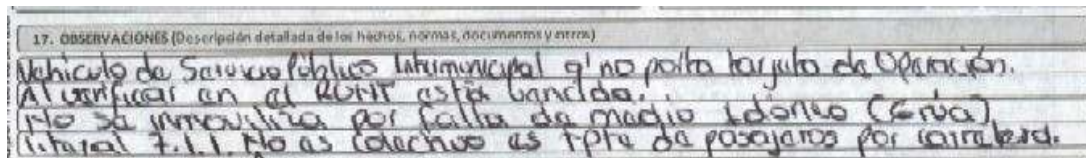 17. OBSERVACIONES (Descripción detallada de los hechos, normas, documentos y otros)
Vehiculo de Servicio Público Intermunicipal q' no porta tarjeta de Operación.
Al verificar en el RUNT está vencida.
No se inmoviliza por falta de medio Idoneo (Grua)
literal 7.1.1. No es colectivo es tpte de pasajeros por carretera.